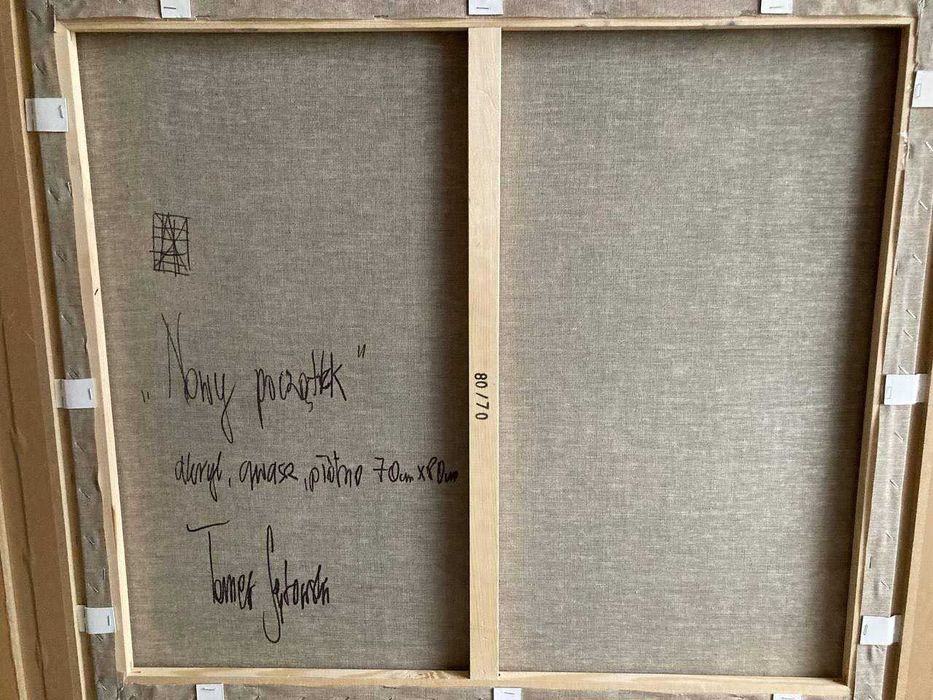 „Nowy początek"
akryl, gwasz, płótno 70cm x 80cm
Tomek
80/70